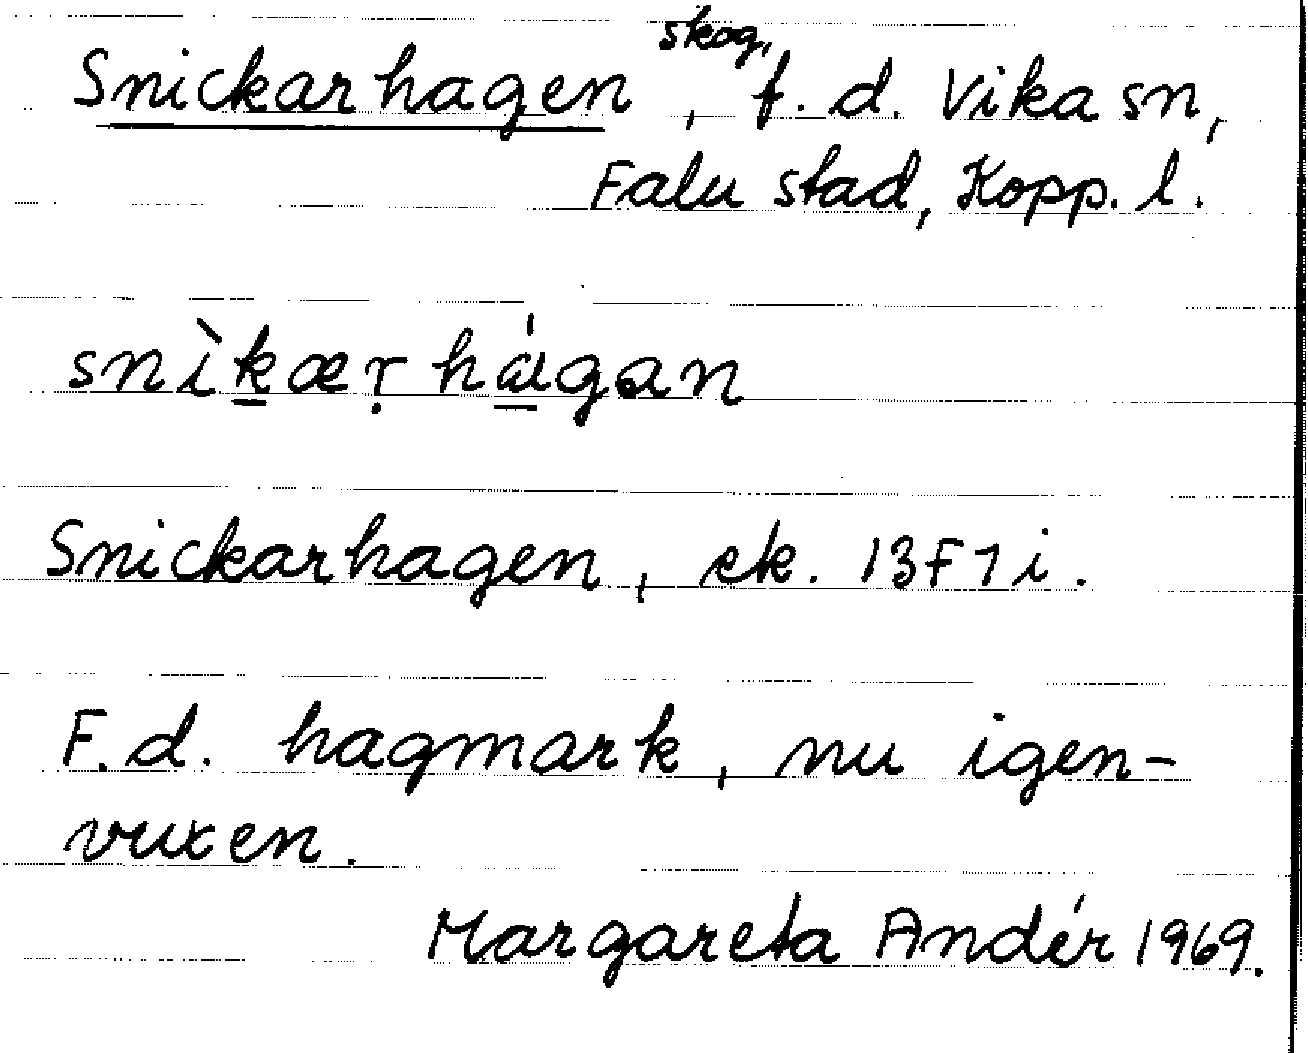 Snickarhagen, skog, f. d. Vika sn,
Falu stad, Kopp. l.
snìk̲æṛhá̲gan
Snickarhagen, ek. 13F7i.
F.d. hagmark, nu igen-
vuxen.
Margareta Andér 1969.